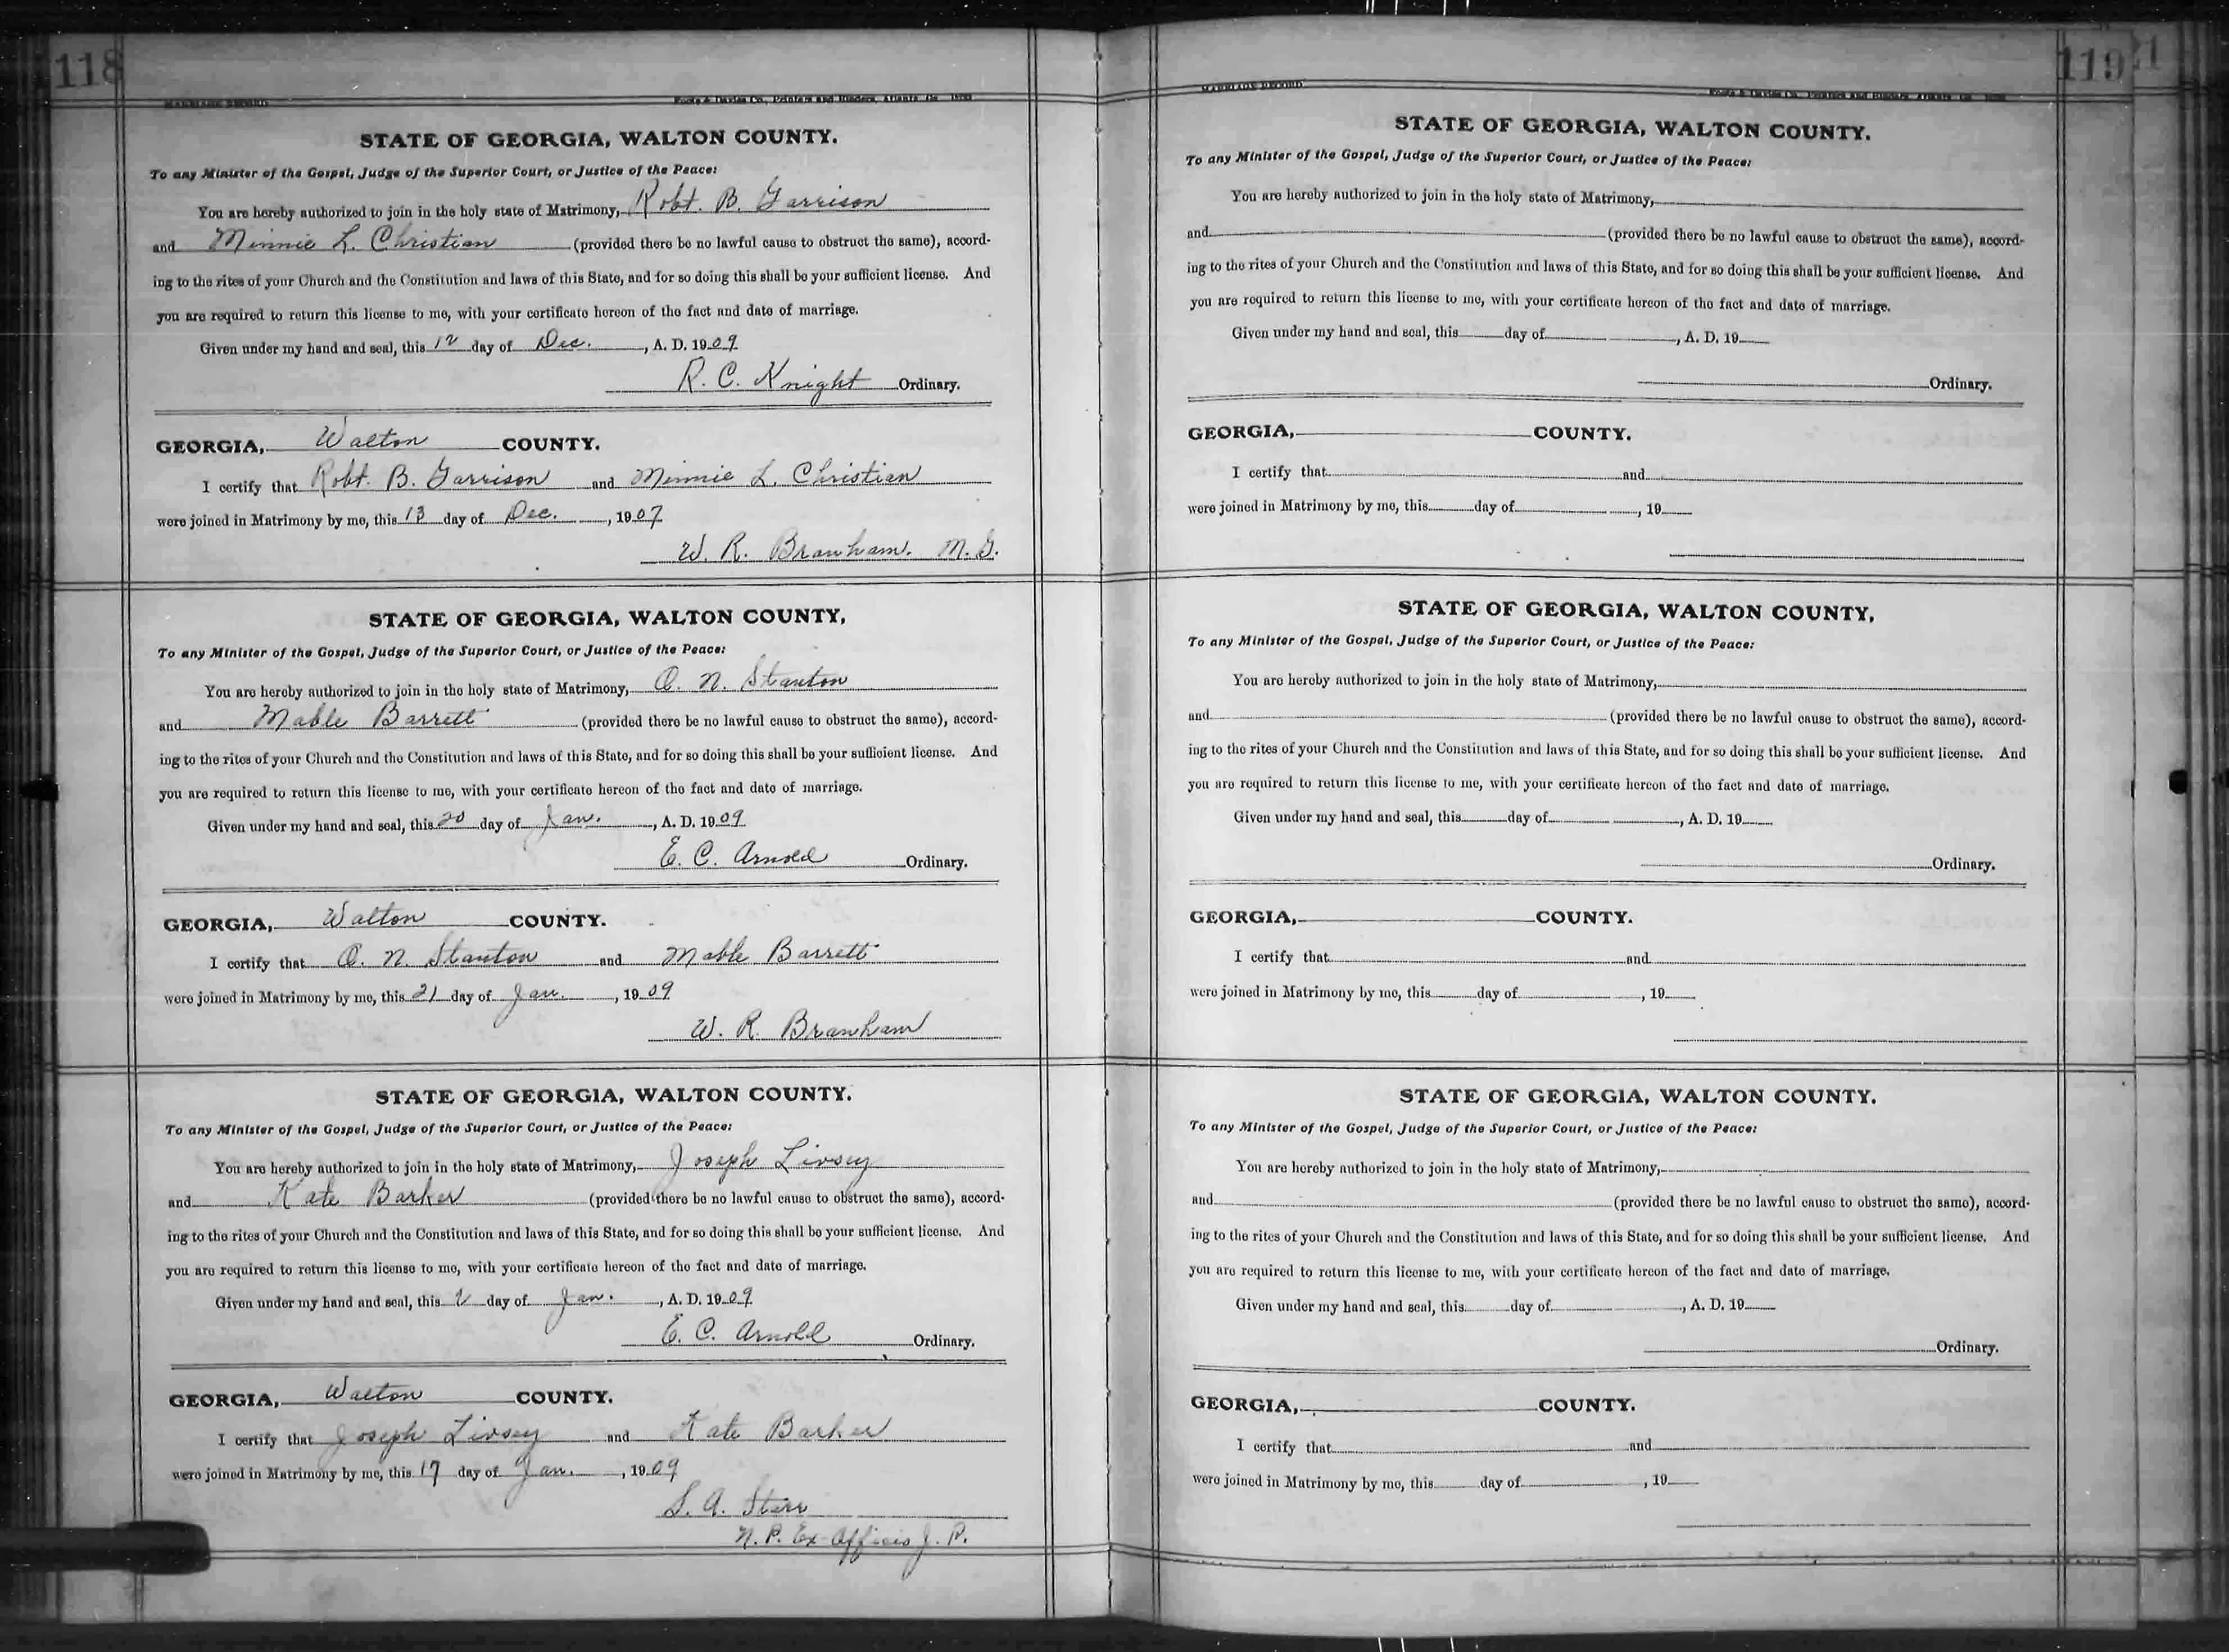 118
MARRIAGE RECORD Foote & Davies Co., Printers and Binders, Atlanta, Ga.
STATE OF GEORGIA, WALTON COUNTY.
To any Minister of the Gospel, Judge of the Superior Court, or Justice of the Peace:
You are hereby authorized to join in the holy state of Matrimony, Robt. B. Garrison
and Minnie L. Christian (provided there be no lawful cause to obstruct the same), accord-
ing to the rites of your Church and the Constitution and laws of this State, and for so doing this shall be your sufficient license. And
you are required to return this license to me, with your certificate hereon of the fact and date of marriage.
Given under my hand and seal, this 12 day of Dec. , A. D. 1909
R. C. Knight Ordinary.
GEORGIA, Walton COUNTY.
I certify that Robt. B. Garrison and Minnie L. Christian
were joined in Matrimony by me, this 13 day of Dec. , 1907
W. R. Branham. M. G.
STATE OF GEORGIA, WALTON COUNTY,
To any Minister of the Gospel, Judge of the Superior Court, or Justice of the Peace:
You are hereby authorized to join in the holy state of Matrimony, O. N. Stanton
and Mable Barrett (provided there be no lawful cause to obstruct the same), accord-
ing to the rites of your Church and the Constitution and laws of this State, and for so doing this shall be your sufficient license. And
you are required to return this license to me, with your certificate hereon of the fact and date of marriage.
Given under my hand and seal, this 20 day of Jan. , A. D. 1909
E. C. Arnold Ordinary.
GEORGIA, Walton COUNTY.
I certify that O. N. Stanton and Mable Barrett
were joined in Matrimony by me, this 21 day of Jan. , 1909
W. R. Branham
STATE OF GEORGIA, WALTON COUNTY.
To any Minister of the Gospel, Judge of the Superior Court, or Justice of the Peace:
You are hereby authorized to join in the holy state of Matrimony, Joseph Livsey
and Kate Barker (provided there be no lawful cause to obstruct the same), accord-
ing to the rites of your Church and the Constitution and laws of this State, and for so doing this shall be your sufficient license. And
you are required to return this license to me, with your certificate hereon of the fact and date of marriage.
Given under my hand and seal, this 2 day of Jan. , A. D. 1909
E. C. Arnold Ordinary.
GEORGIA, Walton COUNTY.
I certify that Joseph Livsey and Kate Barker
were joined in Matrimony by me, this 17 day of Jan. , 1909
S. A. Starr
N. P. Ex-Officio J. P.
119
MARRIAGE RECORD Foote & Davies Co., Printers and Binders, Atlanta, Ga.
STATE OF GEORGIA, WALTON COUNTY.
To any Minister of the Gospel, Judge of the Superior Court, or Justice of the Peace:
You are hereby authorized to join in the holy state of Matrimony,
and (provided there be no lawful cause to obstruct the same), accord-
ing to the rites of your Church and the Constitution and laws of this State, and for so doing this shall be your sufficient license. And
you are required to return this license to me, with your certificate hereon of the fact and date of marriage.
Given under my hand and seal, this day of , A. D. 19
Ordinary.
GEORGIA, COUNTY.
I certify that and
were joined in Matrimony by me, this day of , 19
STATE OF GEORGIA, WALTON COUNTY,
To any Minister of the Gospel, Judge of the Superior Court, or Justice of the Peace:
You are hereby authorized to join in the holy state of Matrimony,
and (provided there be no lawful cause to obstruct the same), accord-
ing to the rites of your Church and the Constitution and laws of this State, and for so doing this shall be your sufficient license. And
you are required to return this license to me, with your certificate hereon of the fact and date of marriage.
Given under my hand and seal, this day of , A. D. 19
Ordinary.
GEORGIA, COUNTY.
I certify that and
were joined in Matrimony by me, this day of , 19
STATE OF GEORGIA, WALTON COUNTY.
To any Minister of the Gospel, Judge of the Superior Court, or Justice of the Peace:
You are hereby authorized to join in the holy state of Matrimony,
and (provided there be no lawful cause to obstruct the same), accord-
ing to the rites of your Church and the Constitution and laws of this State, and for so doing this shall be your sufficient license. And
you are required to return this license to me, with your certificate hereon of the fact and date of marriage.
Given under my hand and seal, this day of , A. D. 19
Ordinary.
GEORGIA, COUNTY.
I certify that and
were joined in Matrimony by me, this day of , 19